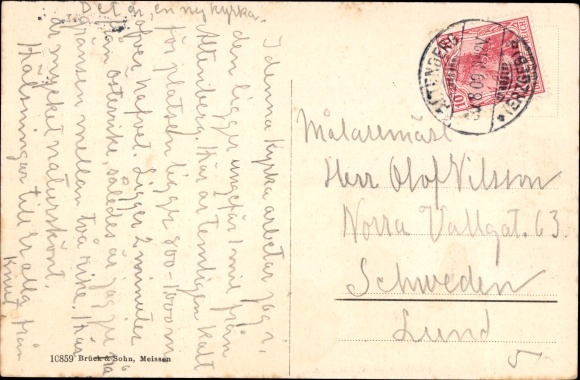 Det är en ny kyrka.
I denna kyrka arbetar jag i,
den ligger ungefär 1 mil från
Altenberg. Här är temligen kallt
för platsen ligger 800-1000 m
öfver hafvet. Ligger 2 minuter
från österrike, således är jag på
gränsen mellan två rike. Här
är mycket naturskönt.
Hälsningar till Er alla från
Knut,
10859 Brück & Sohn, Meissen
ALTENBERG
(ERZGEB.)
REICH
10
Målaremäst
Herr Olof Nilsson
Norra Vallgat. 63.
Schweden
Lund
5